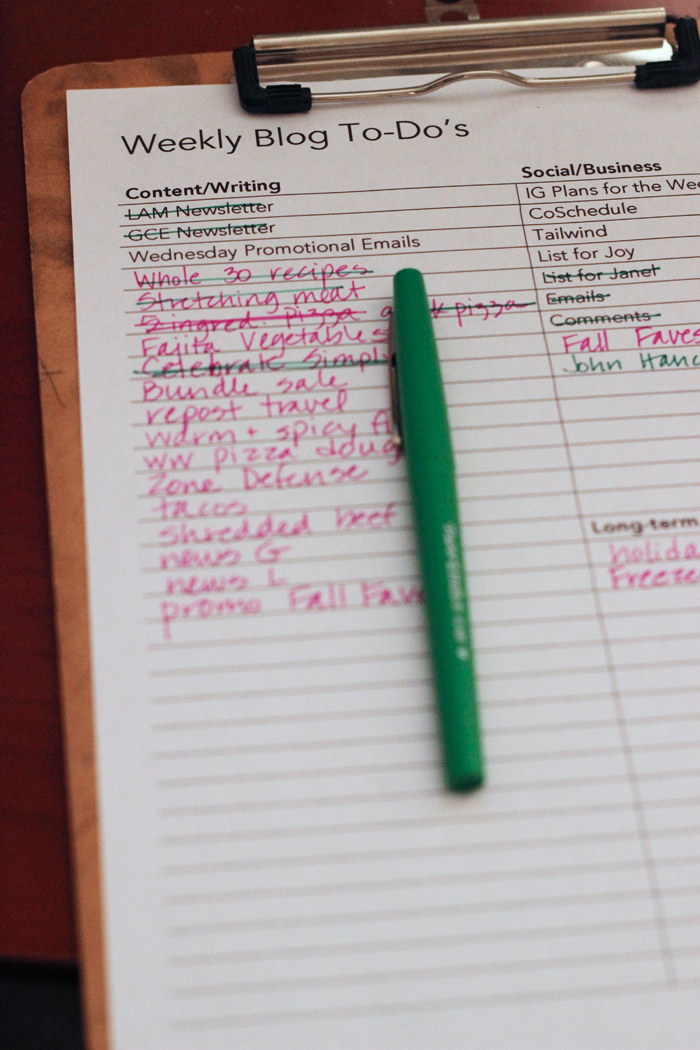 Weekly Blog To-Do's
Content/Writing
LAM Newsletter
GCE Newsletter
Wednesday Promotional Emails
Whole 30 recipes
Stretching meat
5 ingred. pizza pizza
Fajita Vegetables
Celebrate Simply
Bundle sale
repost travel
warm + spicy
ww pizza doug
Zone Defense
tacos
shredded beef
news G
news L
promo Fall Fav
Social/Business
IG Plans for the Wee
CoSchedule
Tailwind
List for Joy
List for Janet
Emails
Comments
Fall Faves
John Hanc
Long-term
holida
Freeze